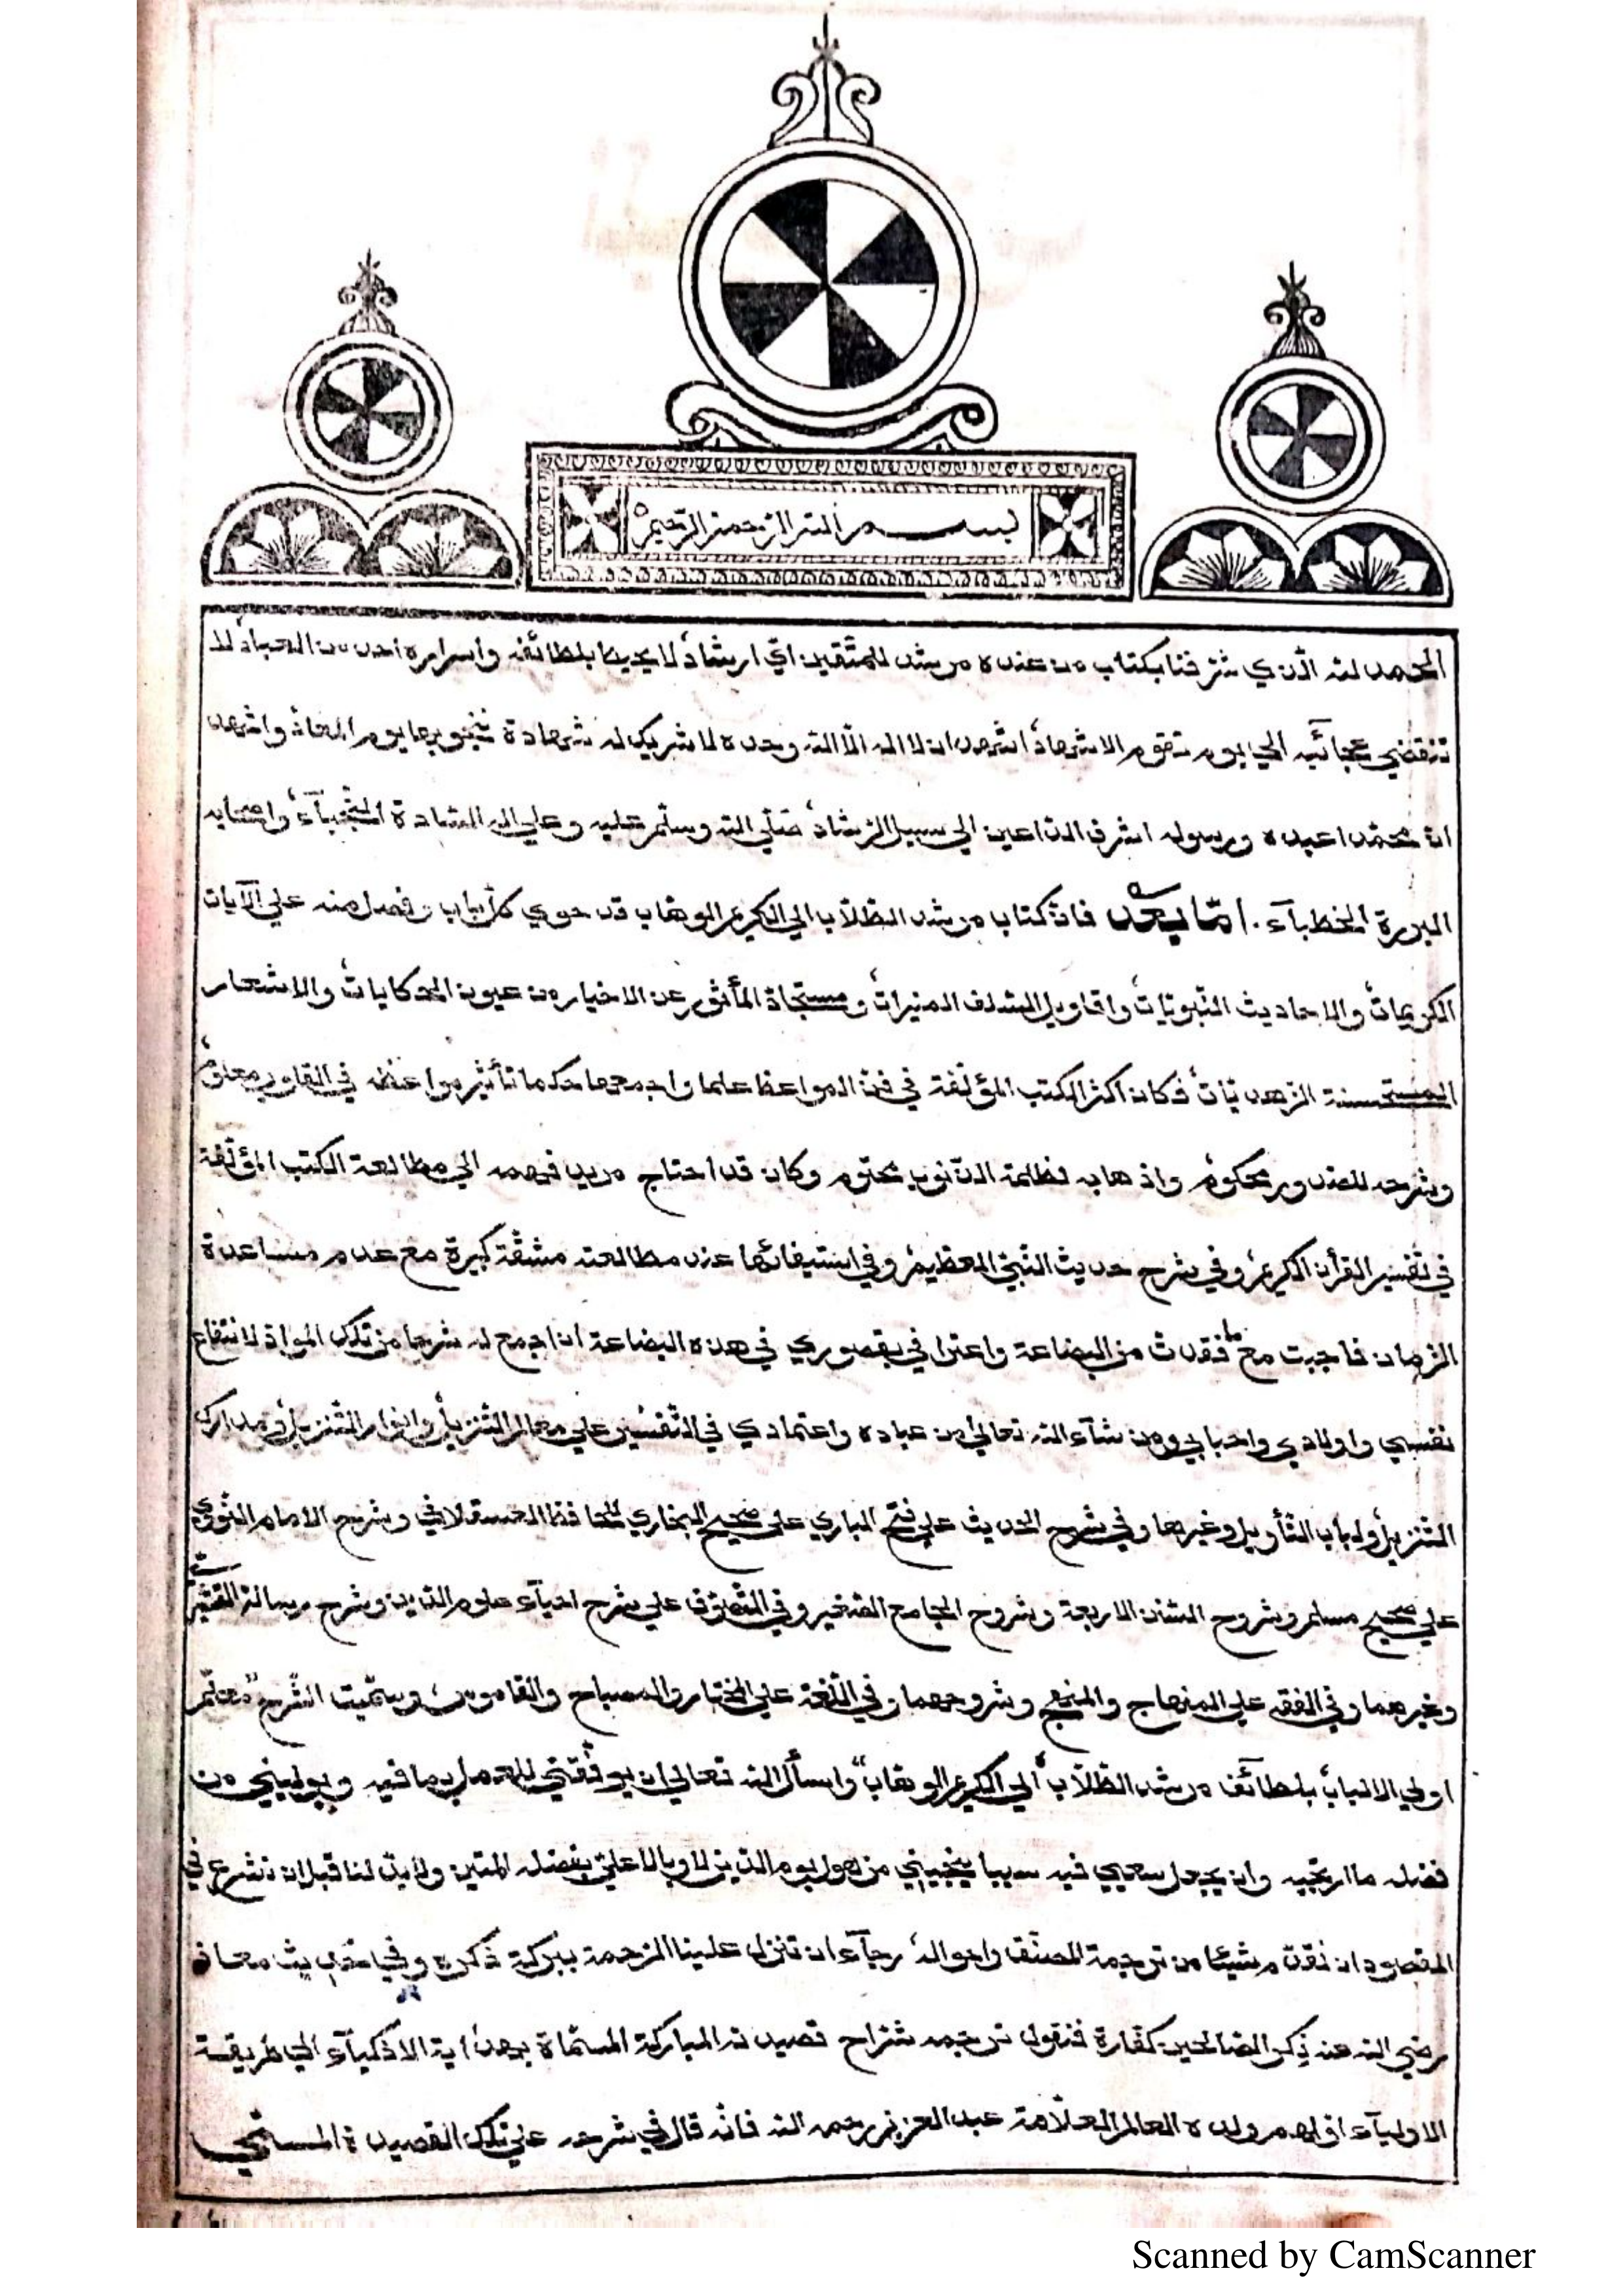 بســـــم الله الرحمن الرحيم
الحمد لله الذي شرفنا بكتاب من عنده مرشد للمتقين اي ارشاد لا يحيط بلطائفه واسراره احد من العباد لا
تنقضي عجائبه الي يوم تقوم الاشهاد اشهد ان لا اله الا الله وحده لا شريك له شهادة ننجو بها يوم المعاد واشهد
ان محمدا عبده ورسوله اشرف الداعين الي سبيل الرشاد صلي الله وسلم عليه وعلي اله السادة النجباء واصحابه
البررة الخطباء . اما بعد فان كتاب مرشد الطلاب الي الكريم الوهاب قد حوي كل باب وفصل منه علي الآيات
الكريمات والاحاديث النبويات واقاويل السلف المنيرات ومستجاد المأثور عن الاخيار من عيون الحكايات والاشعار
المستحسنة الزهديات فكان اكثر الكتب المؤلفة في فن المواعظ علما واجمعها حكما تأثير مواعظه في القلوب معلوم
وشرحه للصدور محكوم واذهابه لظلمة الذنوب محتوم وكان قد احتاج مريد فهمه الي مطالعة الكتب المؤلفة
في تفسير القرأن الكريم وفي شرح حديث النبي العظيم وفي استيفائها عند مطالعته مشقة كبيرة مع عدم مساعدة
الزمان فاجبت مع ما فقدت من البضاعة واعترافي بقصوري في هذه البضاعة ان اجمع له شرحا من تلك المواد لانتفاع
نفسي واولادي واحبابي ومن شآء الله تعالي من عباده واعتمادي في التفسير علي معالم التنزيل وانوار التنزيل ومدارك
التنزيل ولباب التأويل وغيرها وفي شرح الحديث علي فتح الباري علي صحيح البخاري للحافظ العسقلاني وشرح الامام النووي
علي صحيح مسلم وشروح السنن الاربعة وشروح الجامع الصغير وفي التصوف علي شرح احيآء علوم الدين وشرح رسالة القشيري
وغيرهما وفي الفقه علي المنهاج والمنهج وشروحهما وفي اللغة علي المختار والمصباح والقاموس وسميت الشرح "معلم
اولي الالباب بلطائف مرشد الطلاب الي الكريم الوهاب" واسأل الله تعالي ان يوفقني للعمل بما فيه ويوليني من
فضله ما ارتجيه وان يجعل سعيي فيه سببا ينجيني من هول يوم الدين لا وبالا علي بفضله المتين ولا بد لنا قبل ان نشرع في
المقصود ان نقدم شيئا من ترجمة المصنف واحواله رجآء ان تنزل علينا الرحمة ببركة ذكره وفي حديث معاذ
رضي الله عنه ذكر الصالحين كفارة فنقول ترجمه شراح قصيدته المباركة المسماة بهداية الاذكيآء الي طريقة
الاوليآء اولهم ولده العالم العلامة عبد العزيز رحمه الله فانه قال في شرحه علي تلك القصيدة المسمي
Scanned by CamScanner